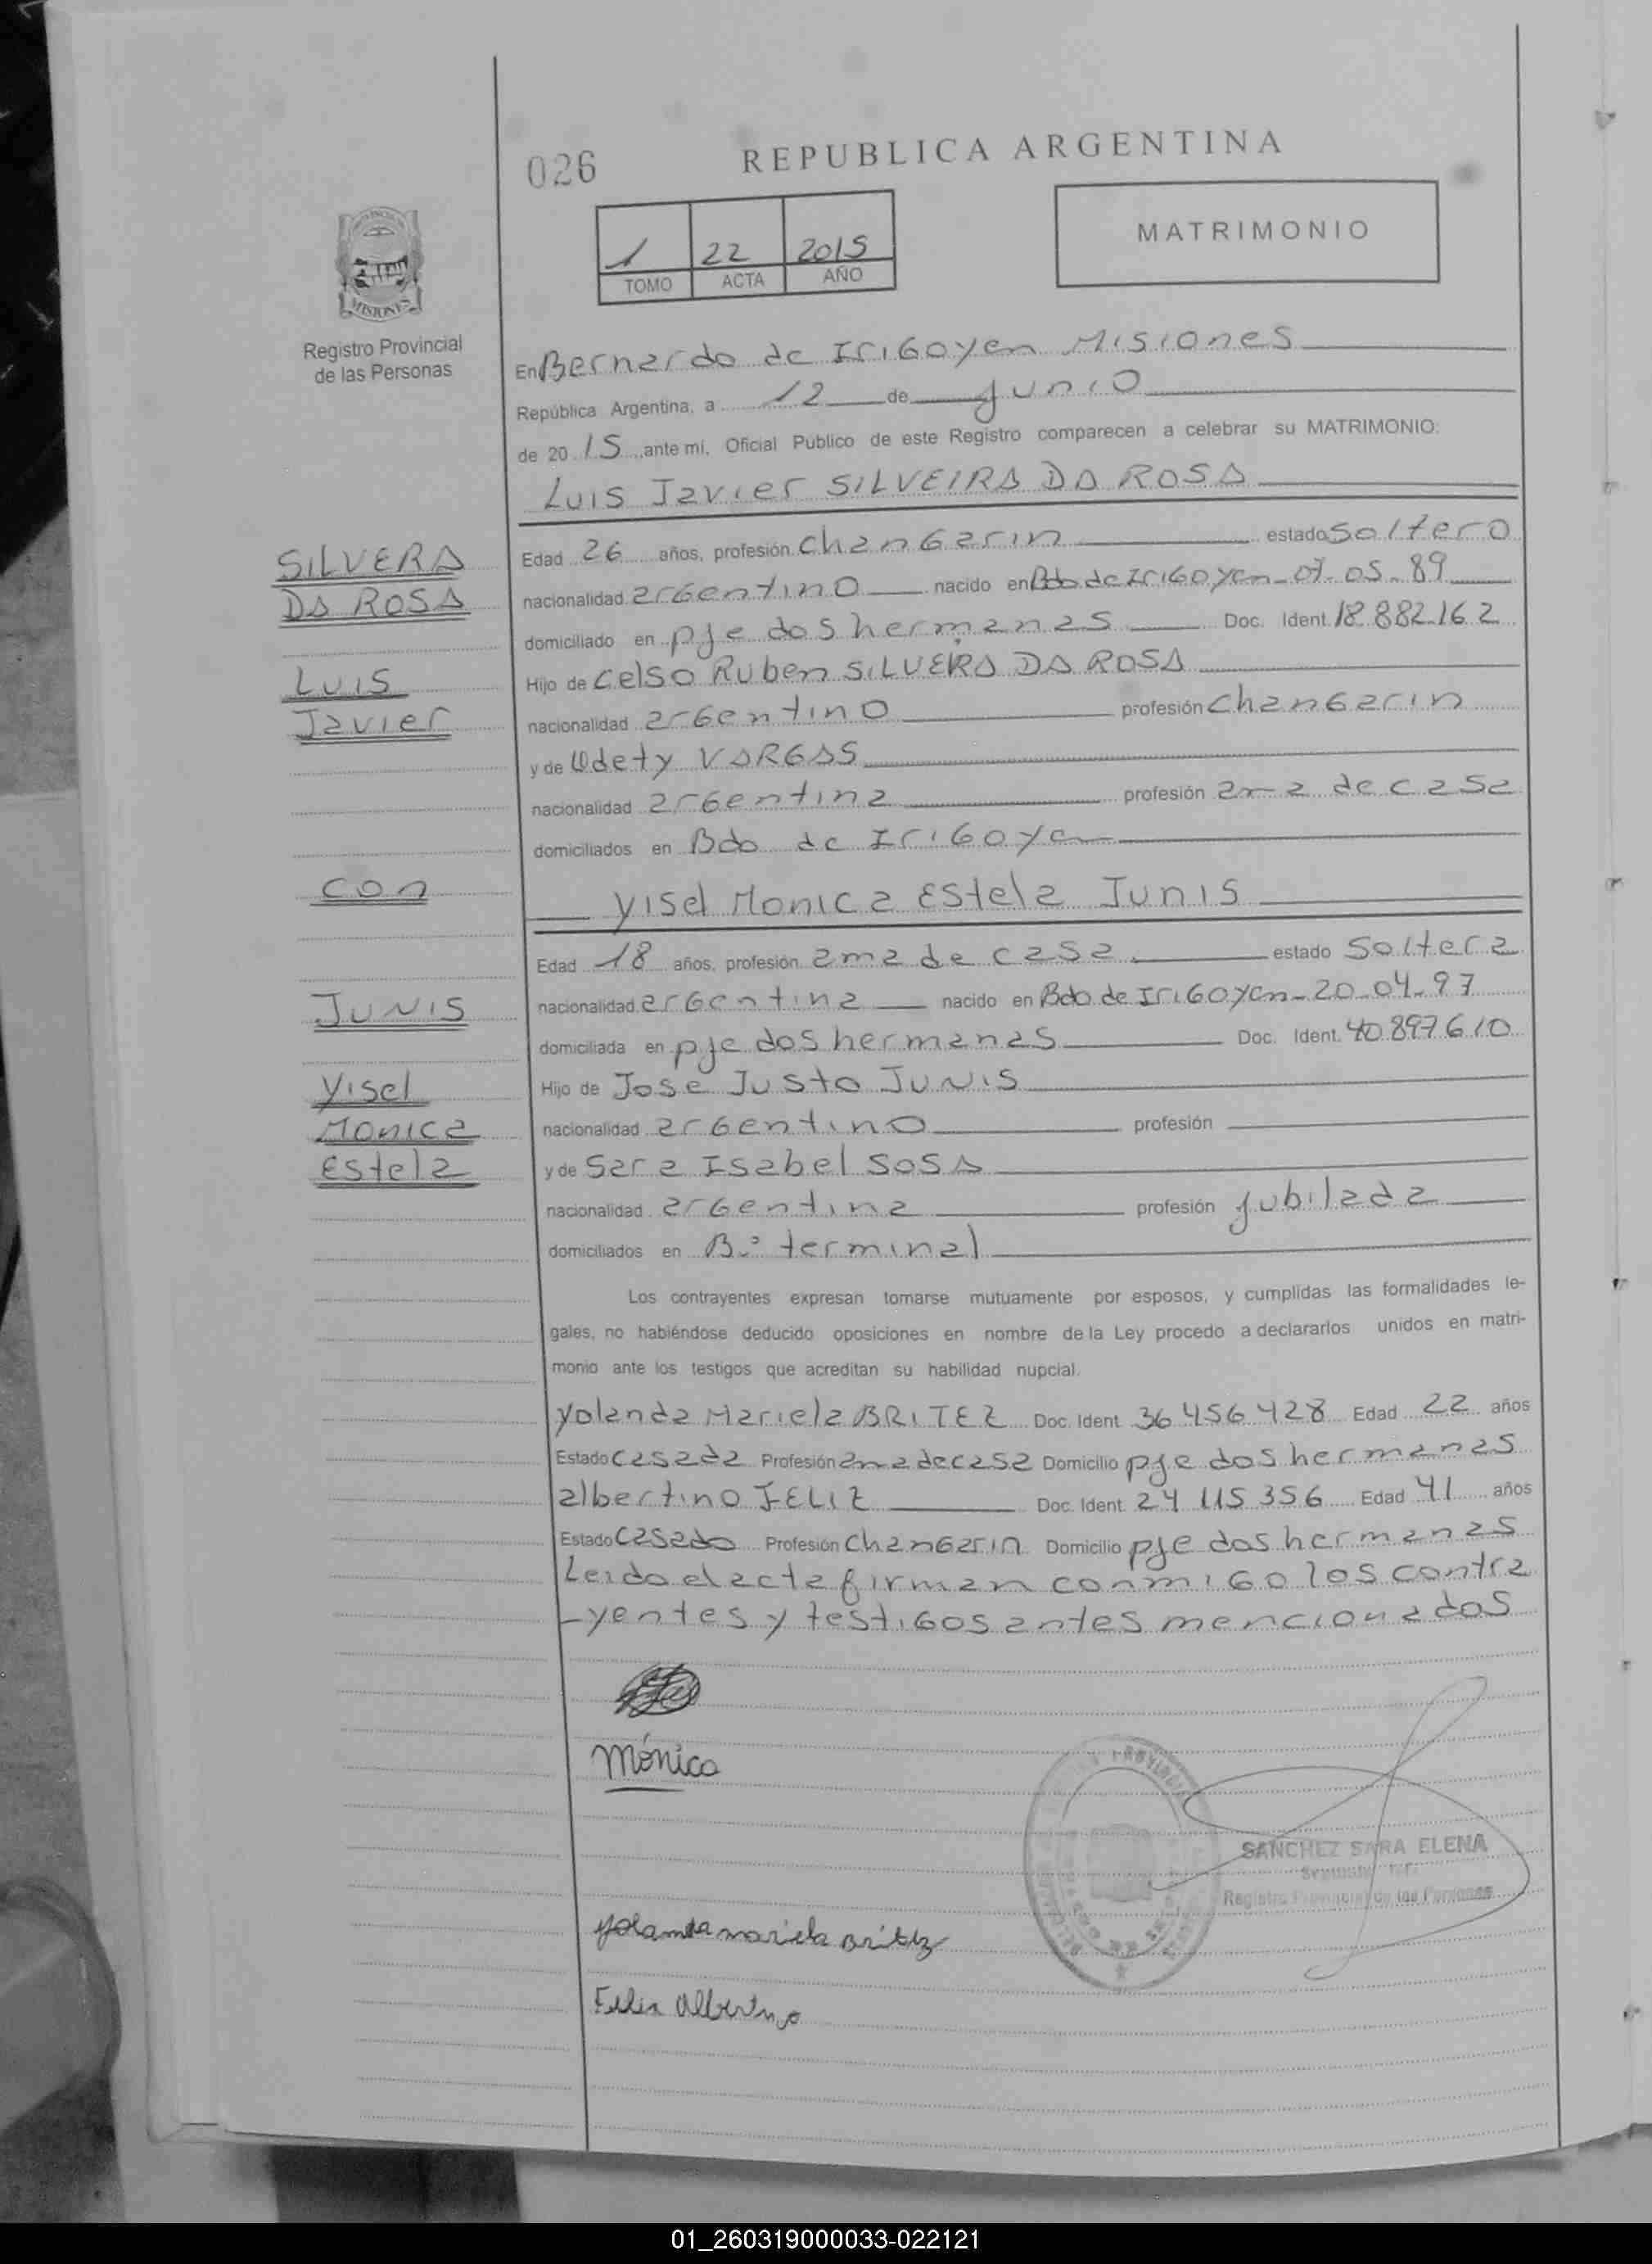 026
REPUBLICA ARGENTINA
1 22 2015
TOMO ACTA AÑO
MATRIMONIO
MISIONES
Registro Provincial
de las Personas
En Bernardo de Irigoyen Misiones
República Argentina, a 12 de Junio
de 20 15 ante mi, Oficial Público de este Registro comparecen a celebrar su MATRIMONIO:
Luis Javier SILVEIRA DA ROSA
SILVERA
DA ROSA
Luis
Javier
Edad 26 años, profesión changarin estado soltero
nacionalidad argentino nacido en Bdo de Irigoyen - 07-05-89
domiciliado en pje dos hermanas Doc. Ident. 18.882.162
Hijo de Celso Ruben SILVEIRA DA ROSA
nacionalidad argentino profesión changarin
y de Odety VARGAS
nacionalidad argentina profesión ama de casa
domiciliados en Bdo de Irigoyen
con
Yisel Monica Estela Junis
Edad 18 años, profesión ama de casa estado soltera
JUNIS
Yisel
Monica
Estela
nacionalidad argentina nacido en Bdo de Irigoyen - 20-04-97
domiciliada en pje dos hermanas Doc. Ident. 40.897.610
Hijo de Jose Justo JUNIS
nacionalidad argentino profesión
y de Sara Isabel SOSA
nacionalidad argentina profesión jubilada
domiciliados en B.° terminal
Los contrayentes expresan tomarse mutuamente por esposos, y cumplidas las formalidades le-
gales, no habiéndose deducido oposiciones en nombre de la Ley procedo a declararlos unidos en matri-
monio ante los testigos que acreditan su habilidad nupcial.
Yolanda Mariela BRITEZ Doc. Ident 36 456 428 Edad 22 años
Estado casada Profesión ama de casa Domicilio pje dos hermanas
albertino FELIZ Doc. Ident. 24 115 356 Edad 41 años
Estado casado Profesión changarin Domicilio pje dos hermanas
Leido el acta firman conmigo los contra
-yentes y testigos antes mencionados
Mónica
SANCHEZ SARA ELENA
Registro Provincial de las Personas
Yolanda mariela Britez
Felix Albertino
01_260319000033-022121